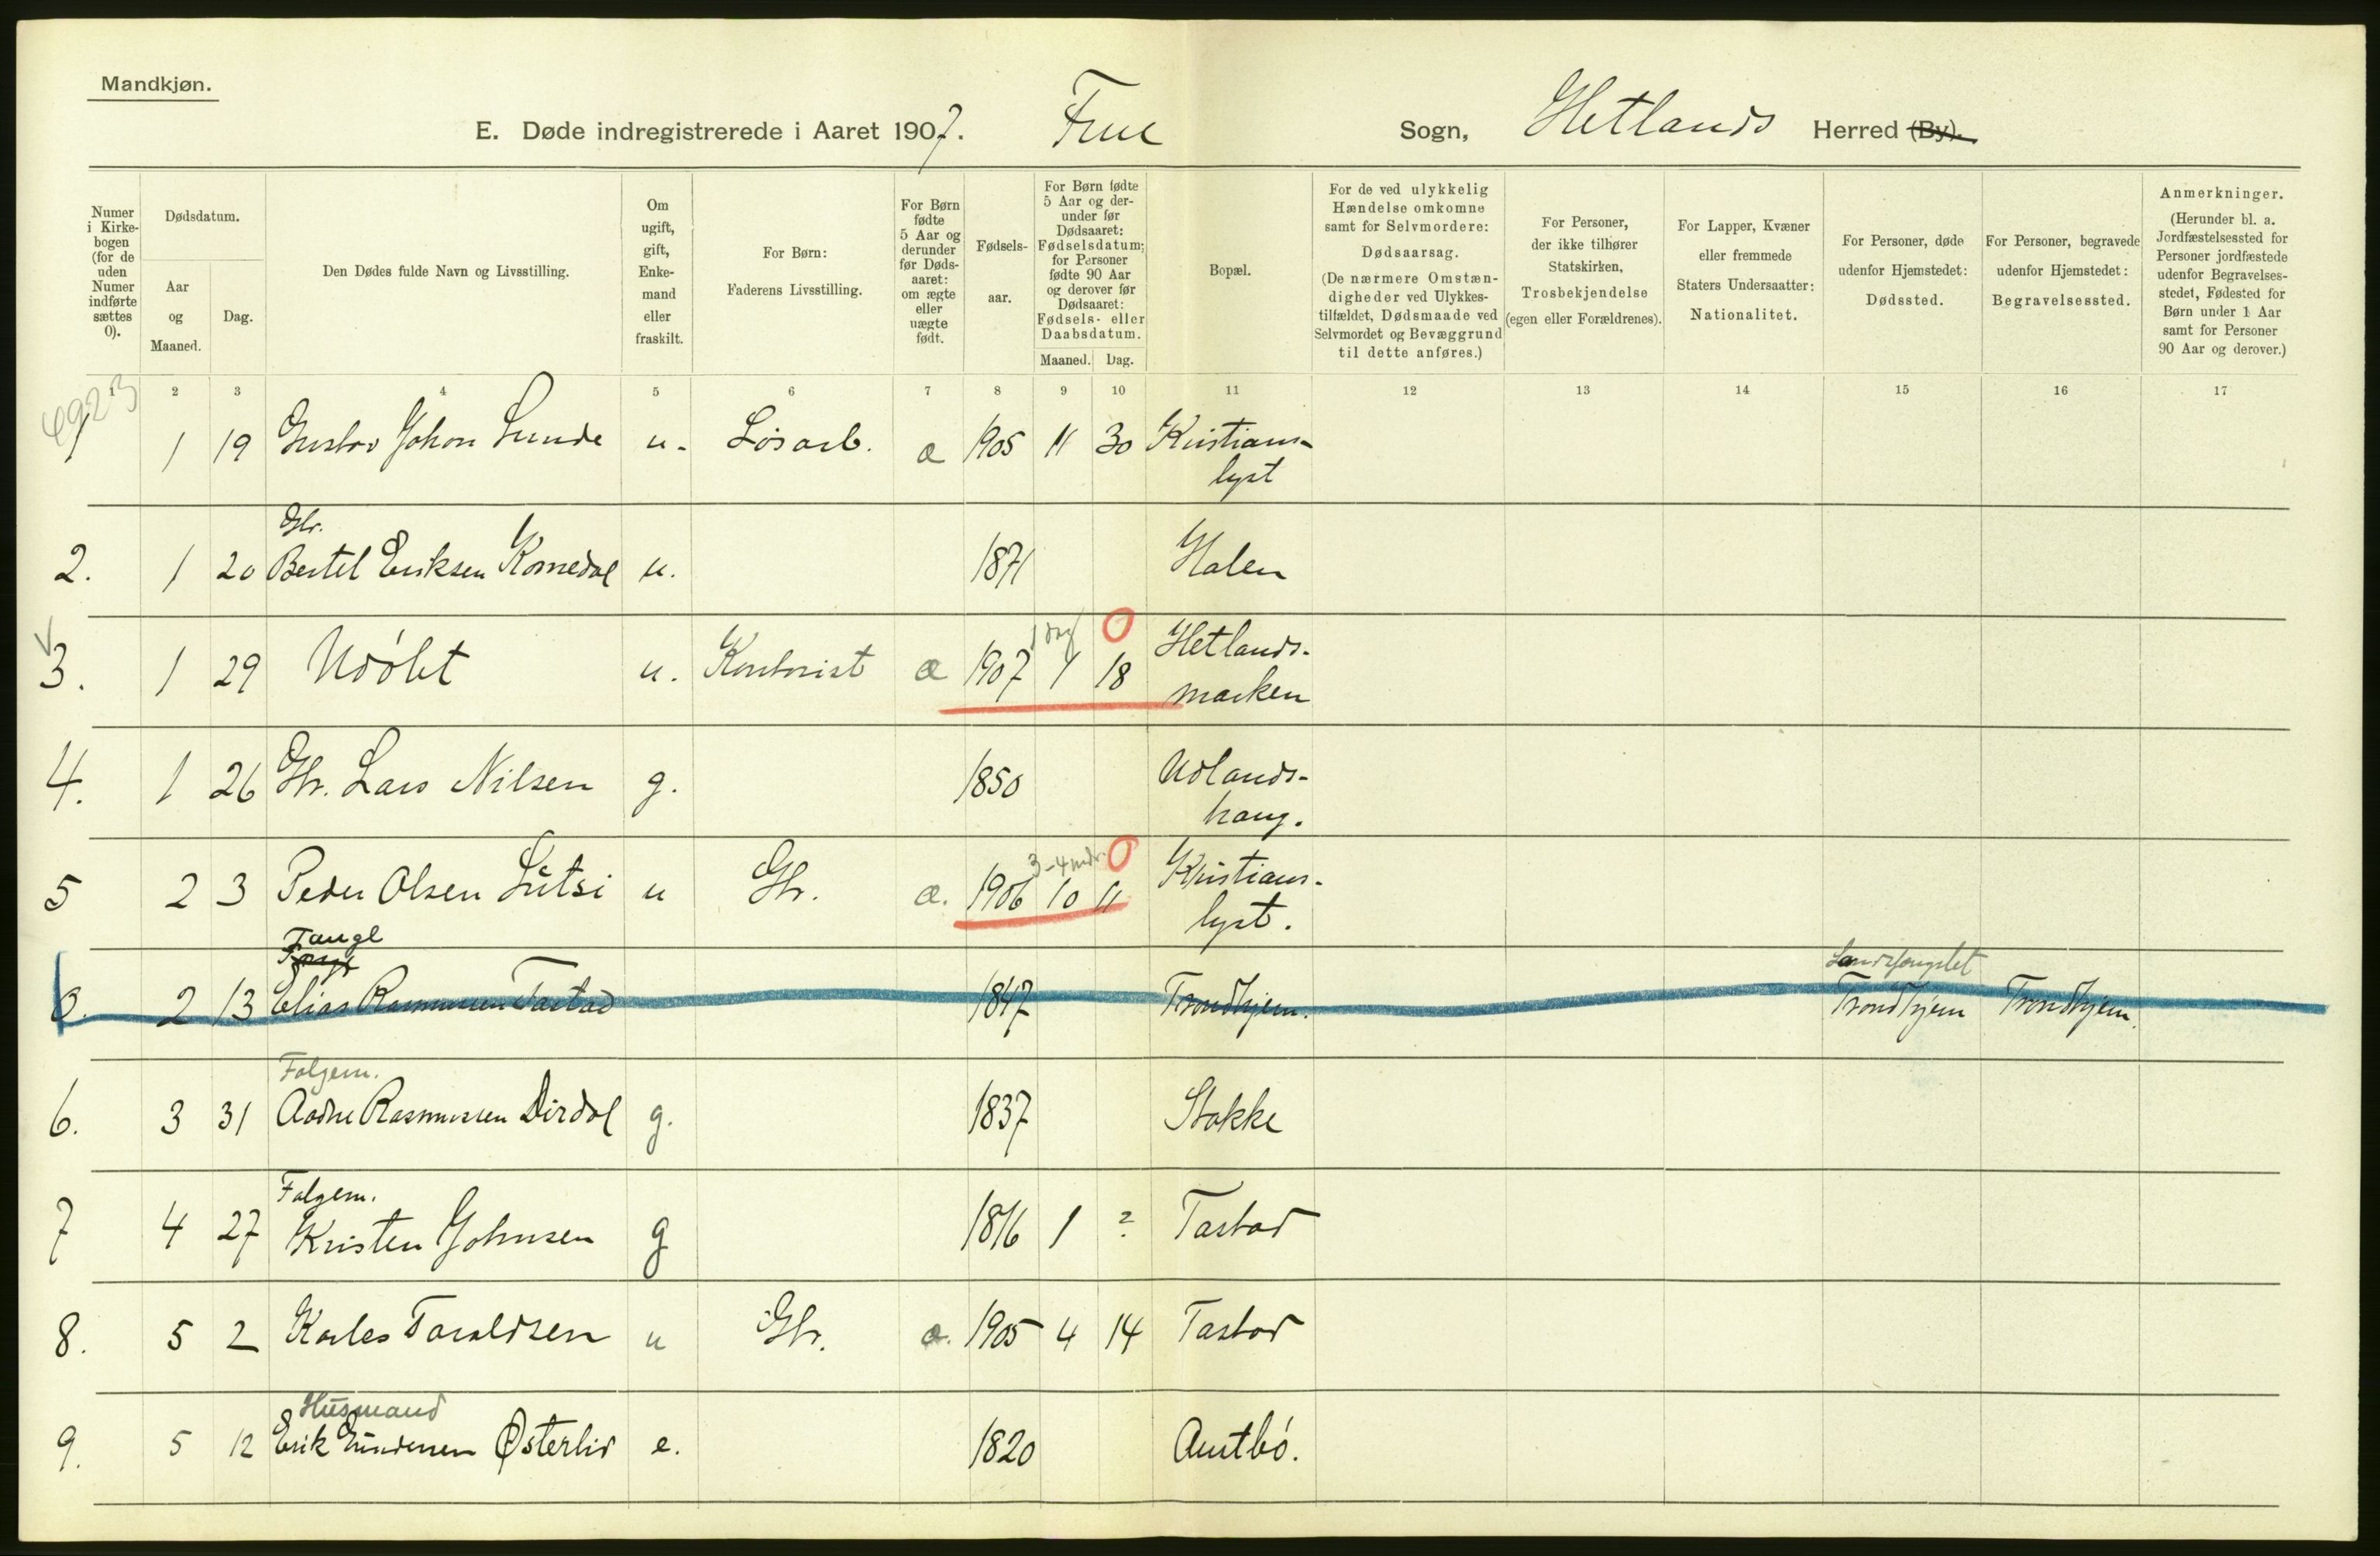 Mandkjøn.
E. Døde indregistrerede i Aaret 1907. Frue Sogn, Hetlands Herred (By).
Numer i Kirkebogen (for de uden Numer indførte sættes 0).
Dødsdatum.
Aar og Maaned.
Dag.
Den Dødes fulde Navn og Livsstilling.
Om ugift, gift, Enkemand eller fraskilt.
For Børn: Faderens Livsstilling.
For Børn fødte 5 Aar og derunder før Dødsaaret: om ægte eller uægte født.
Fødselsaar.
For Børn fødte 5 Aar og derunder før Dødsaaret: Fødselsdatum; for Personer fødte 90 Aar og derover før Dødsaaret: Fødsels- eller Daabsdatum.
Maaned. Dag.
Bopæl.
For de ved ulykkelig Hændelse omkomne samt for Selvmordere: Dødsaarsag. (De nærmere Omstændigheder ved Ulykkestilfældet, Dødsmaade ved Selvmordet og Bevæggrund til dette anføres.)
For Personer, der ikke tilhører Statskirken, Trosbekjendelse (egen eller Forældrenes).
For Lapper, Kvæner eller fremmede Staters Undersaatter: Nationalitet.
For Personer, døde udenfor Hjemstedet: Dødssted.
For Personer, begravede udenfor Hjemstedet: Begravelsessted.
Anmerkninger. (Herunder bl. a. Jordfæstelsessted for Personer jordfæstede udenfor Begravelsesstedet, Fødested for Børn under 1 Aar samt for Personer 90 Aar og derover.)
1 2 3 4 5 6 7 8 9 10 11 12 13 14 15 16 17
4923
1 1 19 Gustav Johan Lunde u. Løsarb. æ 1905 11 30 Kristianslyst
Gbr.
2. 1 20 Bertel Eriksen Komedal u. 1871 Halen
1 dag 0
3. 1 29 Udøbt u. Kontorist æ 1907 1 18 Hetlandsmarken
4. 1 26 Gbr. Lars Nilsen g. 1850 Udlandshaug.
3-4 mdr. 0
5 2 3 Peder Olsen Lutsi u Gbr. æ. 1906 10 11 Kristianslyst.
Fange
0. 2 13 Elias Rasmussen Tastad 1847 Trondhjem. Landsfængslet Trondhjem Trondhjem.
Folgem.
6. 3 31 Aadne Rasmussen Dirdal g. 1837 Stokke
Folgem.
7 4 27 Kristen Johnsen g 1816 1 ? Tastad
8. 5 2 Karles Taraldsen u Gbr. æ. 1905 4 14 Tastad
Husmand
9. 5 12 Erik Gundersen Østerlid e. 1820 Austbø.